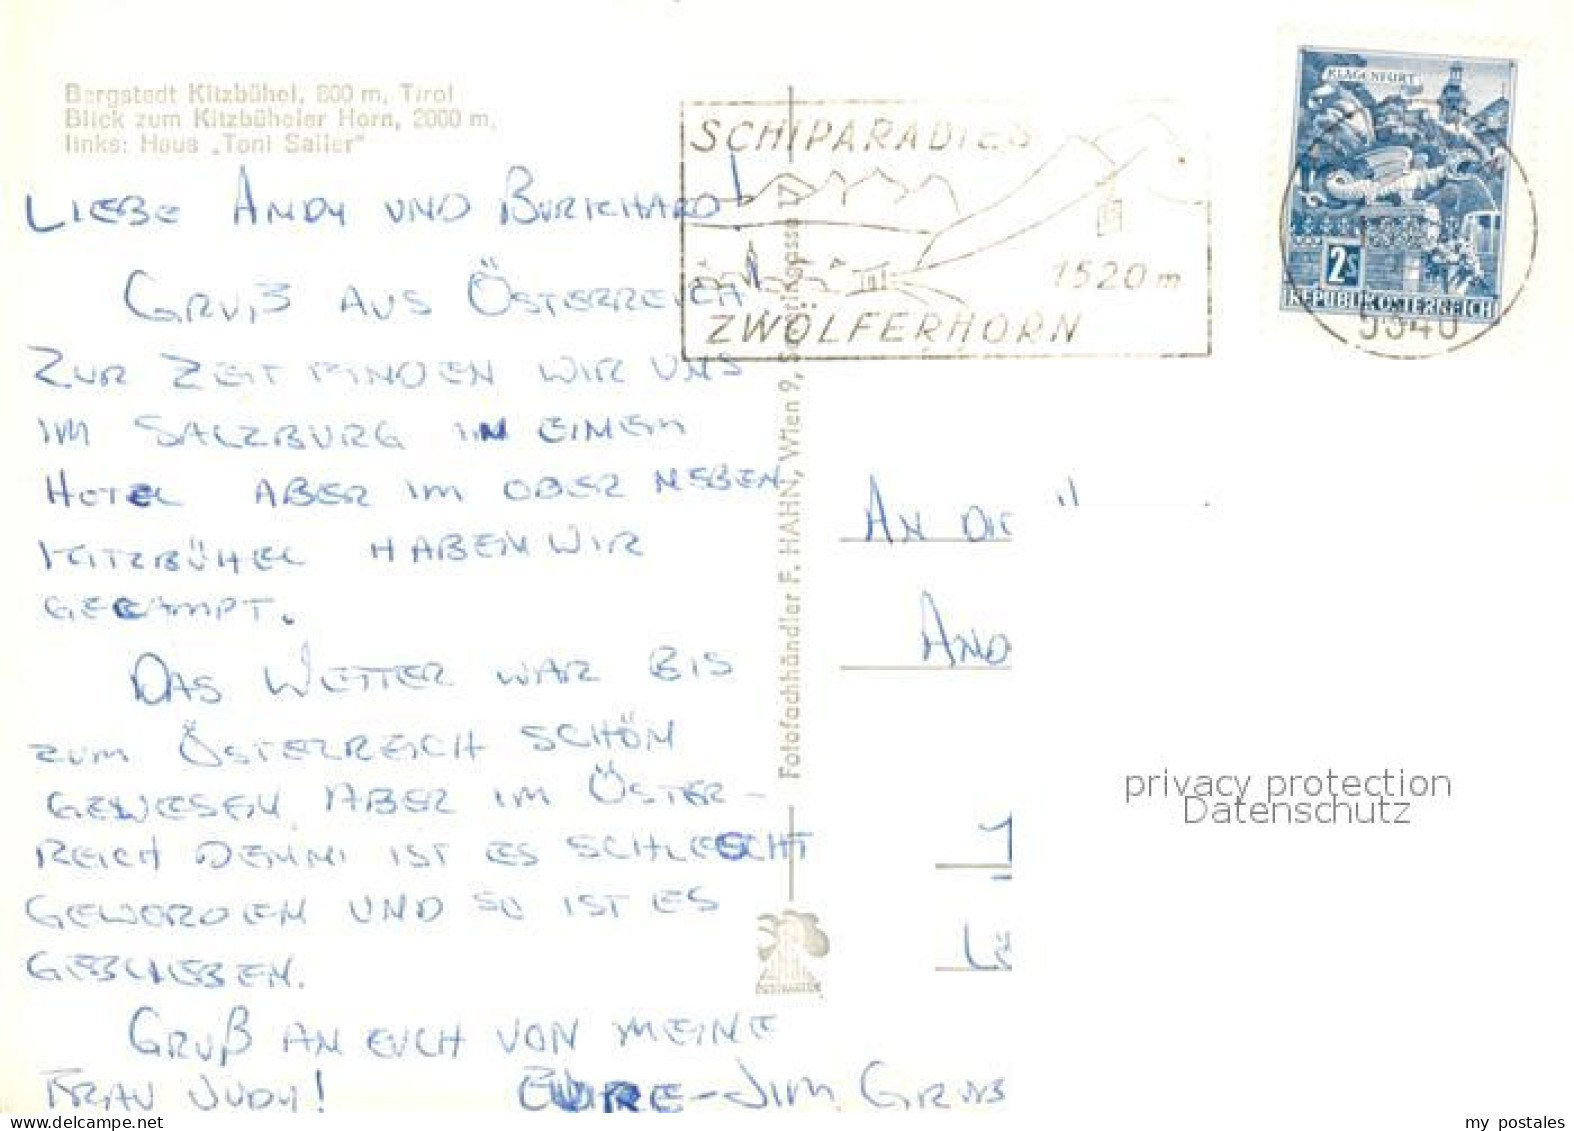 Bergstadt Kitzbühel, 800 m, Tirol
Blick zum Kitzbüheler Horn, 2000 m,
links: Haus „Toni Sailer"
LIEBE ANDY UND BURKHARD!
GRUß AUS ÖSTERREICH!
ZUR ZEIT FINDEN WIR UNS
IM SALZBURG IN EINEM
HOTEL ABER IM OBER NEBEN
KITZBÜHEL HABEN WIR
GECAMPT.
DAS WETTER WAR BIS
ZUM ÖSTERREICH SCHÖN
GEWESEN, ABER IM ÖSTER-
REICH DENN IST ES SCHLECHT
GEWORDEN UND SO IST ES
GEBLIEBEN.
GRUß AN EUCH VON MEINE
FRAU JUDY! EURE-JIM GRUß
Fotofachhändler F. HAHN, Wien 9, 17
SCHIPARADIES
1520 m
ZWÖLFERHORN
KLAGENFURT
2S
REPUBLIK ÖSTERREICH
5340
AN DIE
AND
1
LÜ
privacy protection
Datenschutz
my postales